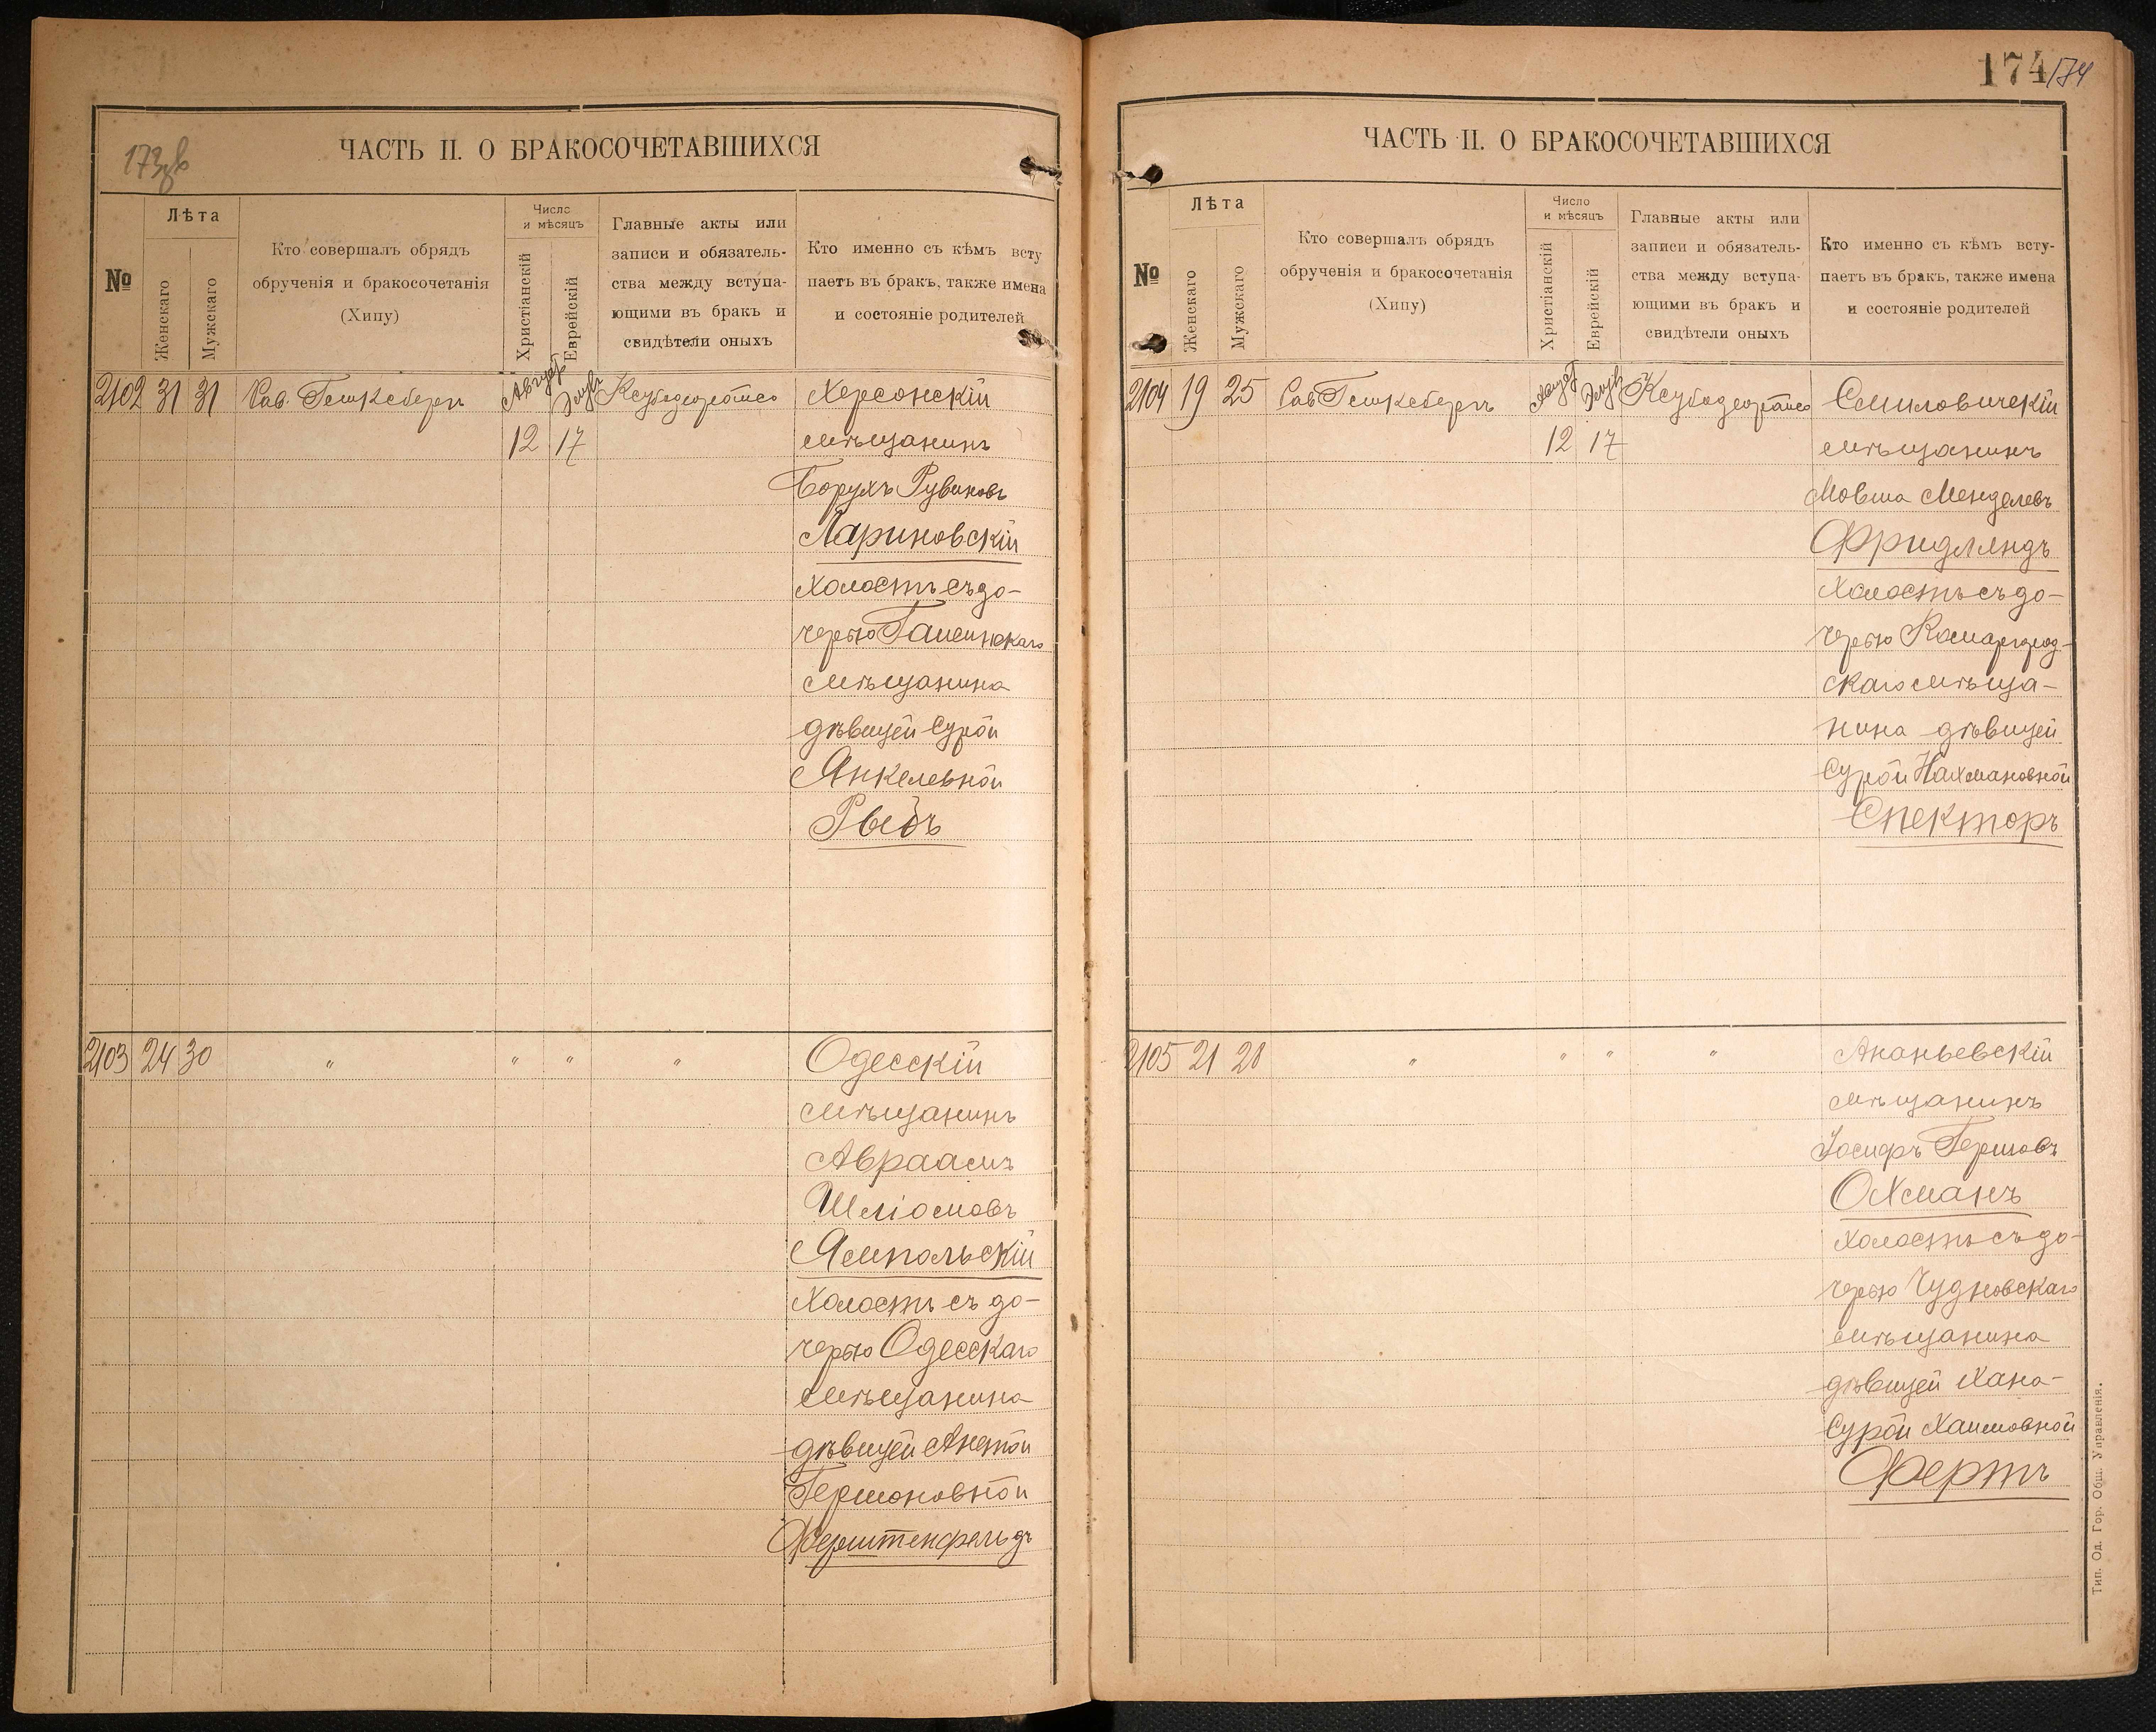 173об
ЧАСТЬ II. О БРАКОСОЧЕТАВШИХСЯ
№
Лѣта
Женскаго
Мужскаго
Кто совершалъ обрядъ
обрученія и бракосочетанія
(Хипу)
Число
и мѣсяцъ
Христіанскій
Еврейскій
Главные акты или
записи и обязатель-
ства между вступа-
ющими въ бракъ и
свидѣтели оныхъ
Кто именно съ кѣмъ всту
паетъ въ бракъ, также имена
и состояніе родителей
2102 31 31 Рав. Август Элулъ Херсонскій
12 17 мѣщанинъ
Борухъ Рувиновъ
Лариновскій
холостъ съ до-
черью
мѣщанина
дѣвицей Сурой
Янкелевной
Рыбъ
2103 24 30 " " " " Одесскій
мѣщанинъ
Авраамъ
Шліомовъ
Ямпольскій
холостъ съ до-
черью Одесскаго
мѣщанина
дѣвицей Анетой
Гершоновной
Ферштенфельдъ
174 174
ЧАСТЬ II. О БРАКОСОЧЕТАВШИХСЯ
№
Лѣта
Женскаго
Мужскаго
Кто совершалъ обрядъ
обрученія и бракосочетанія
(Хипу)
Число
и мѣсяцъ
Христіанскій
Еврейскій
Главные акты или
записи и обязатель-
ства между вступа-
ющими въ бракъ и
свидѣтели оныхъ
Кто именно съ кѣмъ всту-
паетъ въ бракъ, также имена
и состояніе родителей
2104 19 25 Рав Август Элулъ Смиловичскій
12 17 мѣщанинъ
Мовша Менделевъ
Фридляндъ
холостъ съ до-
черью Комаргрод-
скаго мѣща-
нина дѣвицей
Сурой Нахмановной
Спекторъ
2105 21 28 " " " " Ананьевскій
мѣщанинъ
Іосифъ Гершовъ
Охманъ
холостъ съ до-
черью Чудновскаго
мѣщанина
дѣвицей Хана-
Сурой Хаимовной
Фертъ
Тип. Од. Гор. Общ. Управленія.